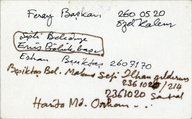 Feray Başkan 260 05 20
Özel Kalem
Şişli Belediye
Eşkan Beşiktaş 260 91 70
Beşiktaş Bel. Makine Şef. İlhan Yıldırım
236 10 20 / 214
236 10 20 Santral
Harita Md. Orhan